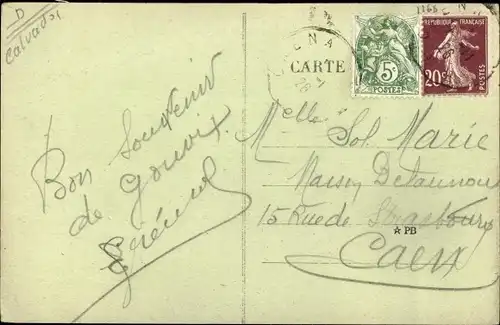 D
Calvados
CARTE
5c
POSTES
REPUBLIQUE FRANÇAISE
20c
POSTES
Bon Souvenir
de Gouvix
Melle Sol. Marie
Maison Delaunou
15 Rue de Strasbourg
PB
Caen